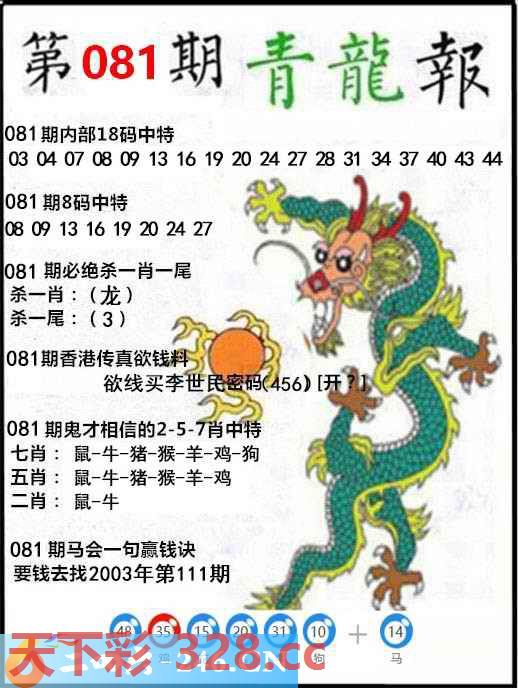 第081期 青龍報
081期内部18码中特
03 04 07 08 09 13 16 19 20 24 27 28 31 34 37 40 43 44
081期8码中特
08 09 13 16 19 20 24 27
081期必绝杀一肖一尾
杀一肖：（龙）
杀一尾：（3）
081期香港传真欲钱料
欲线买李世民密码(456) [开？]
081期鬼才相信的2-5-7肖中特
七肖：鼠-牛-猪-猴-羊-鸡-狗
五肖：鼠-牛-猪-猴-羊-鸡
二肖：鼠-牛
081期马会一句赢钱诀
要钱去找2003年第111期
48 35 15 20 31 10 + 14
鸡 狗 马
天下彩 328.cc